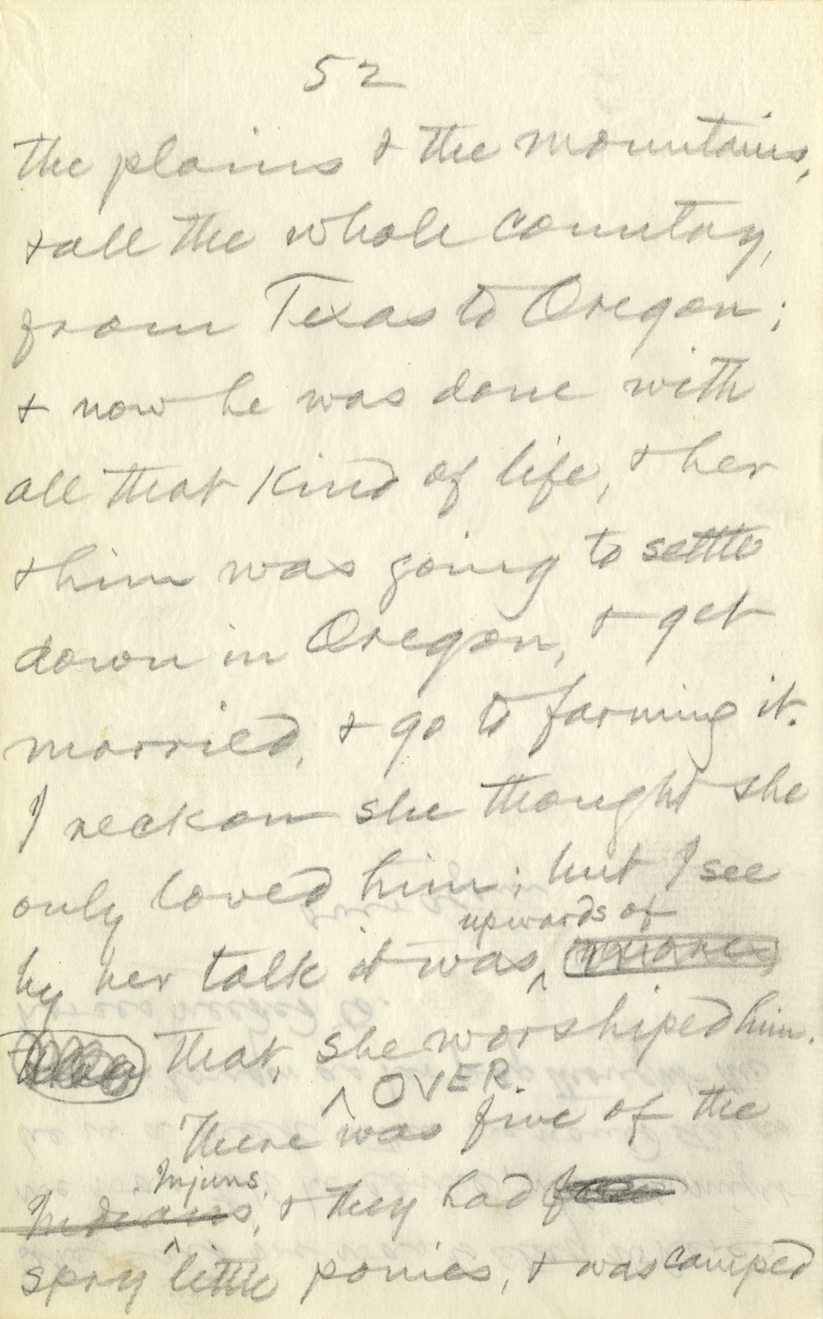 52
the plains & the mountains,
& all the whole country,
from Texas to Oregon;
& now he was done with
all that kind of life, & her
& him was going to settle
down in Oregon, & get
married, & go to farming it.
I reckon she thought she
only loved him; but I see
upwards of
by her talk it was
that, she worshiped him.
OVER.
There was five of the
Injuns,
Indians, & they had
spry little ponies, & was camped